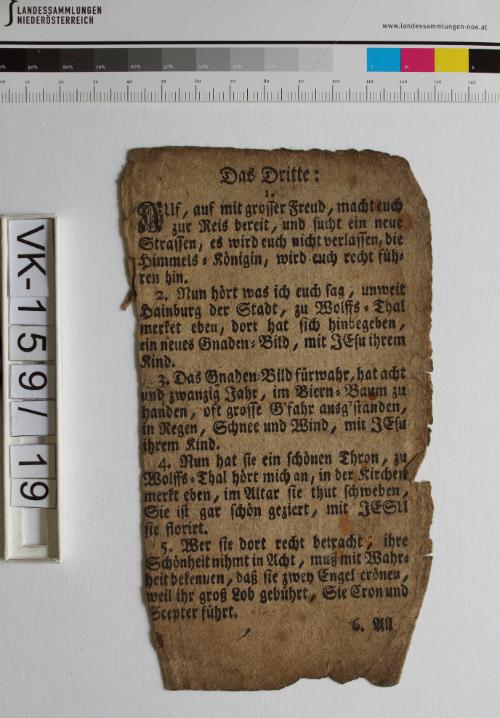 LANDESSAMMLUNGEN
NIEDERÖSTERREICH
www.landessammlungen-noe.at
VK-159/19
Das Dritte:
1.
AUf, auf mit grosser Freud, macht euch
zur Reis bereit, und sucht ein neue
Strassen, es wird euch nicht verlassen, die
Himmels-Königin, wird euch recht füh-
ren hin.
2. Nun hört was ich euch sag, unweit
Hainburg der Stadt, zu Wolffs-Thal
merket eben, dort hat sich hinbegeben,
ein neues Gnaden-Bild, mit JEsu ihrem
Kind.
3. Das Gnaden-Bild fürwahr, hat acht
und zwanzig Jahr, im Biern-Baum zu
handen, oft grosse G'fahr ausg'standen,
in Regen, Schnee und Wind, mit JEsu
ihrem Kind.
4. Nun hat sie ein schönen Thron, zu
Wolffs-Thal hört mich an, in der Kirchen
merkt eben, im Altar sie thut schweben,
Sie ist gar schön geziert, mit JESU
sie florirt.
5. Wer sie dort recht betracht, ihre
Schönheit nihmt in Acht, muß mit Wahr-
heit bekennen, daß sie zwey Engel crönen,
weil ihr groß Lob gebührt, Sie Cron und
Scepter führt.
6. All